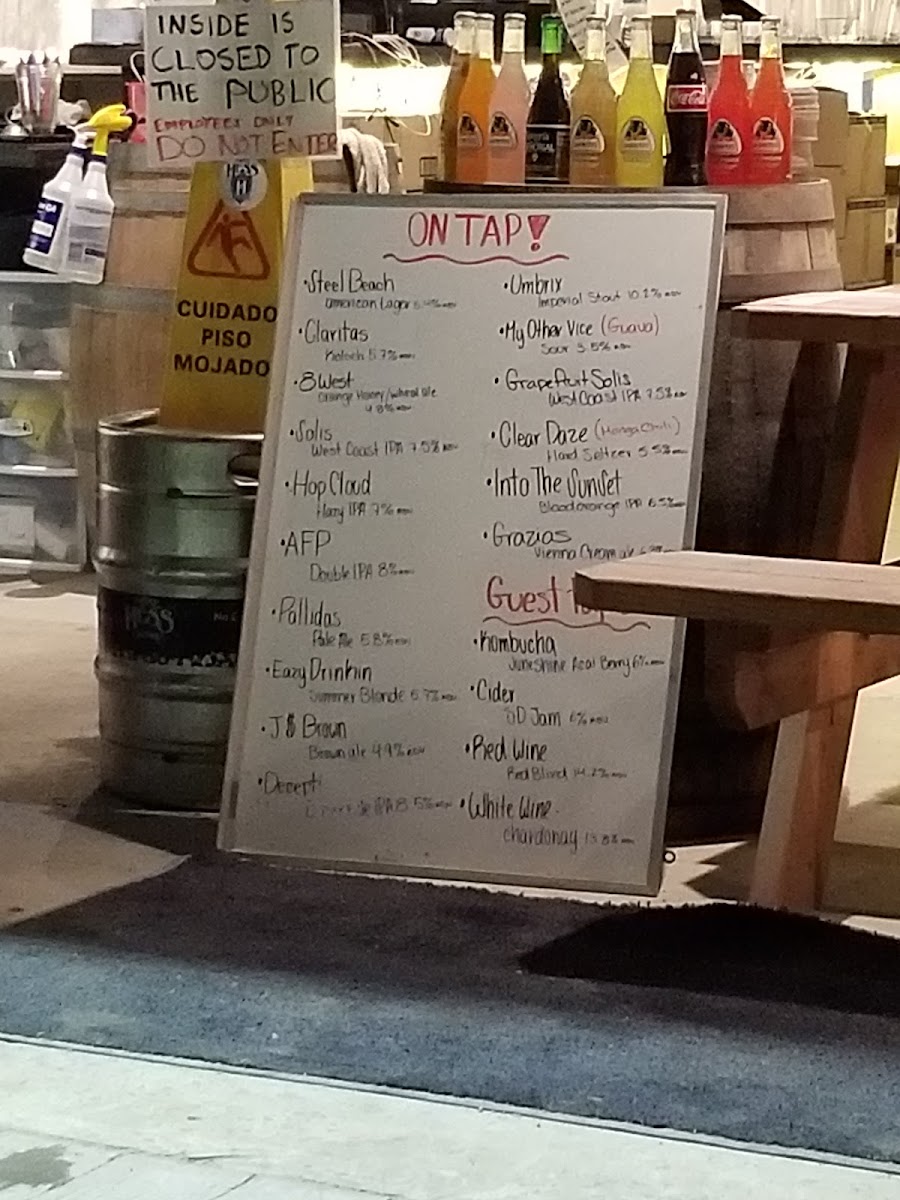 INSIDE IS
CLOSED TO
THE PUBLIC
EMPLOYEES ONLY
DO NOT ENTER
HESS
CUIDADO
PISO
MOJADO
HESS
Coca-Cola
ON TAP!
•Steel Beach
American Lager
•Claritas
Kolsch 5.7% ABV
•8 West
Orange Honey/wheat ale
4.8% ABV
•Solis
West Coast IPA 7.5% ABV
•Hop Cloud
Hazy IPA 7% ABV
•AFP
Double IPA 8% ABV
•Pallidas
Pale Ale 5.8% ABV
•Eazy Drinkin
Summer Blonde 5.7% ABV
•J$ Brown
Brown ale 4.9% ABV
•Umbrix
Imperial Stout 10.2% ABV
•My Other Vice (Guava)
Sour 3.5% ABV
•Grapefruit Solis
West Coast IPA 7.5% ABV
•Clear Daze (Mango Chili)
Hard Seltzer 5.5% ABV
•Into The Sunset
Blood orange IPA 6.5% ABV
•Grazias
Vienna Cream ale
Guest
•Kombucha
Juneshine Acai Berry 6% ABV
•Cider
SD Jam 6% ABV
•Red Wine
Red Blend 14.2% ABV
•White Wine
Chardonay